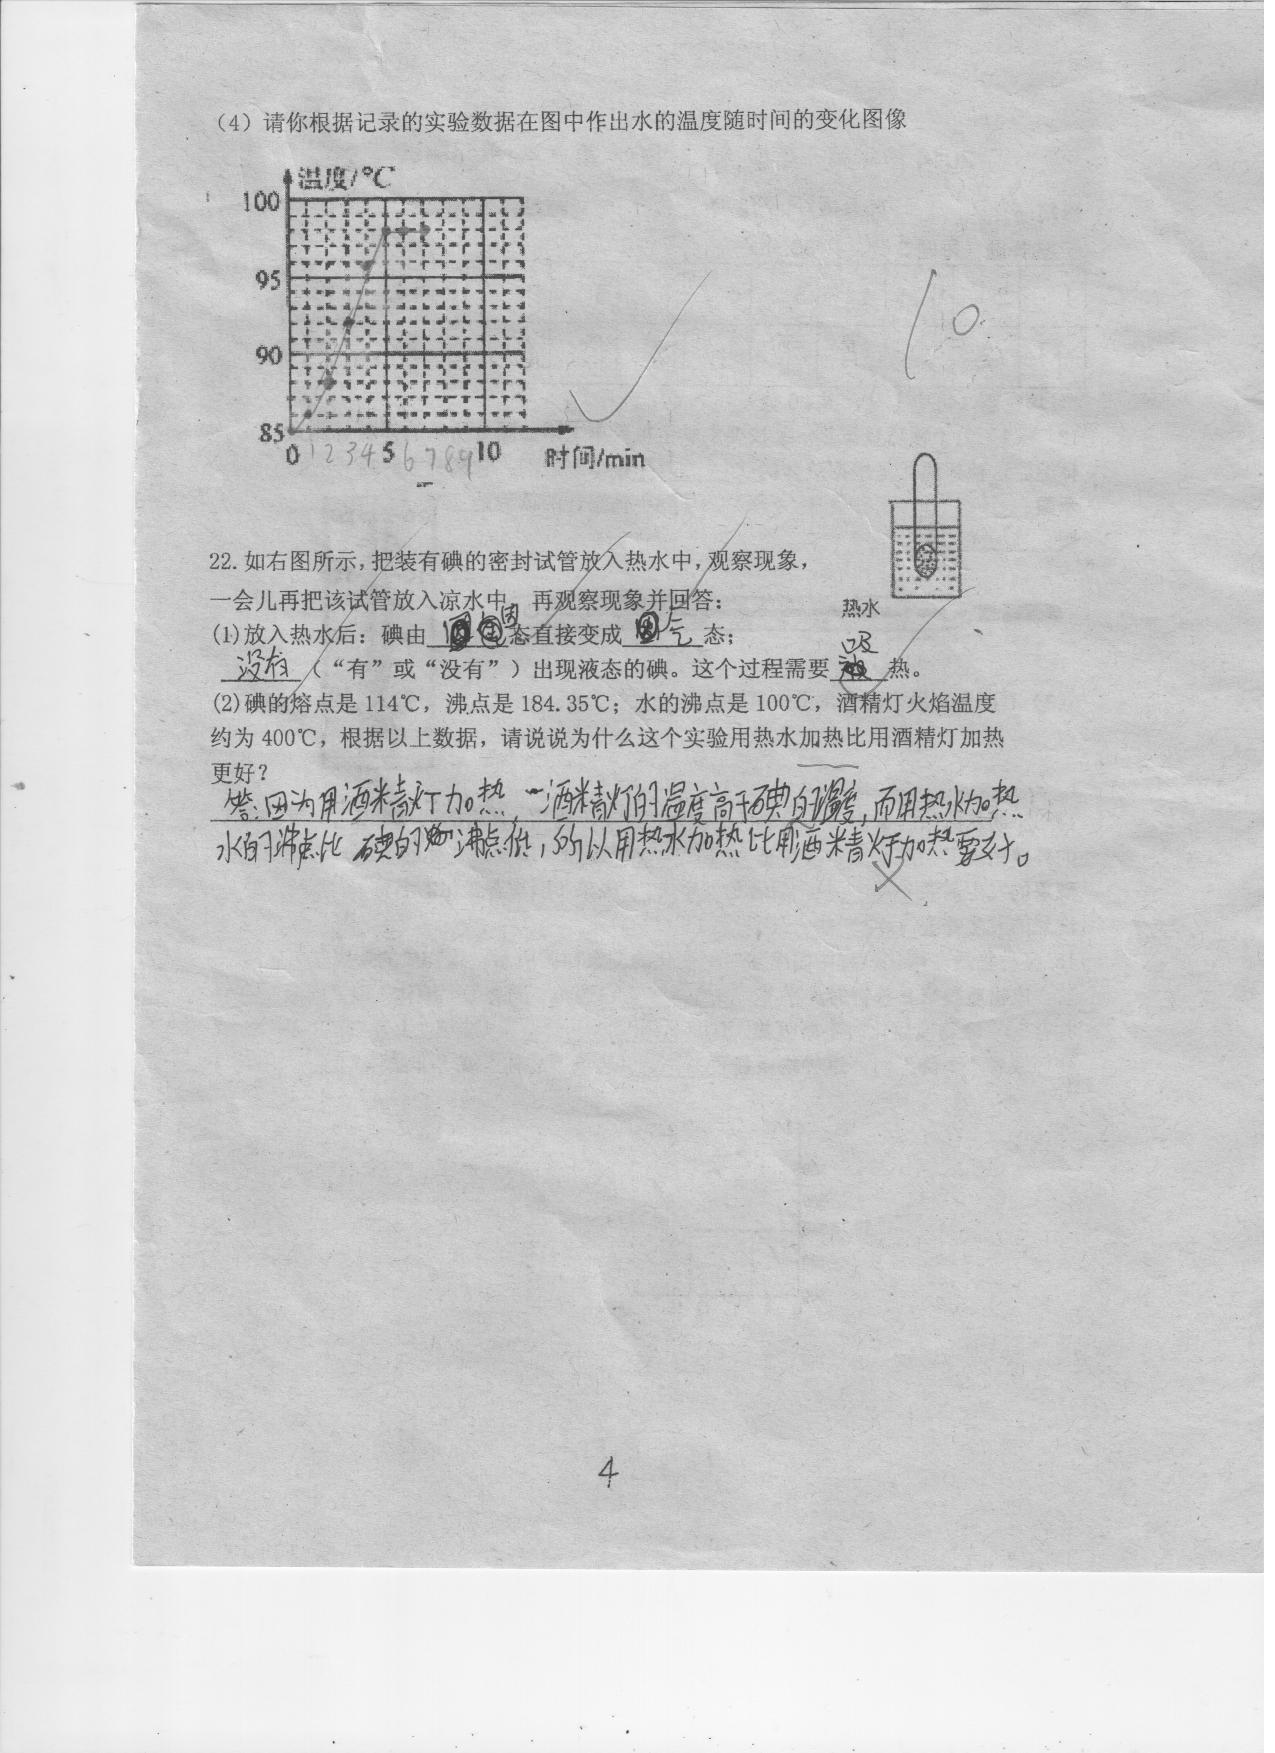 （4）请你根据记录的实验数据在图中作出水的温度随时间的变化图像
温度/℃
100
95
90
85
0 1 2 3 4 5 6 7 8 9 10 时间/min
10
22.如右图所示，把装有碘的密封试管放入热水中，观察现象，
一会儿再把该试管放入凉水中，再观察现象并回答：
热水
(1)放入热水后：碘由 固 态直接变成 气 态；
没有（“有”或“没有”）出现液态的碘。这个过程需要 吸 热。
(2)碘的熔点是114℃，沸点是184.35℃；水的沸点是100℃，酒精灯火焰温度
约为400℃，根据以上数据，请说说为什么这个实验用热水加热比用酒精灯加热
更好？
答：因为用酒精灯加热，酒精灯的温度高于碘的温度，而用热水加热
水的沸点比碘的沸点低，所以用热水加热比用酒精灯加热要好。
4